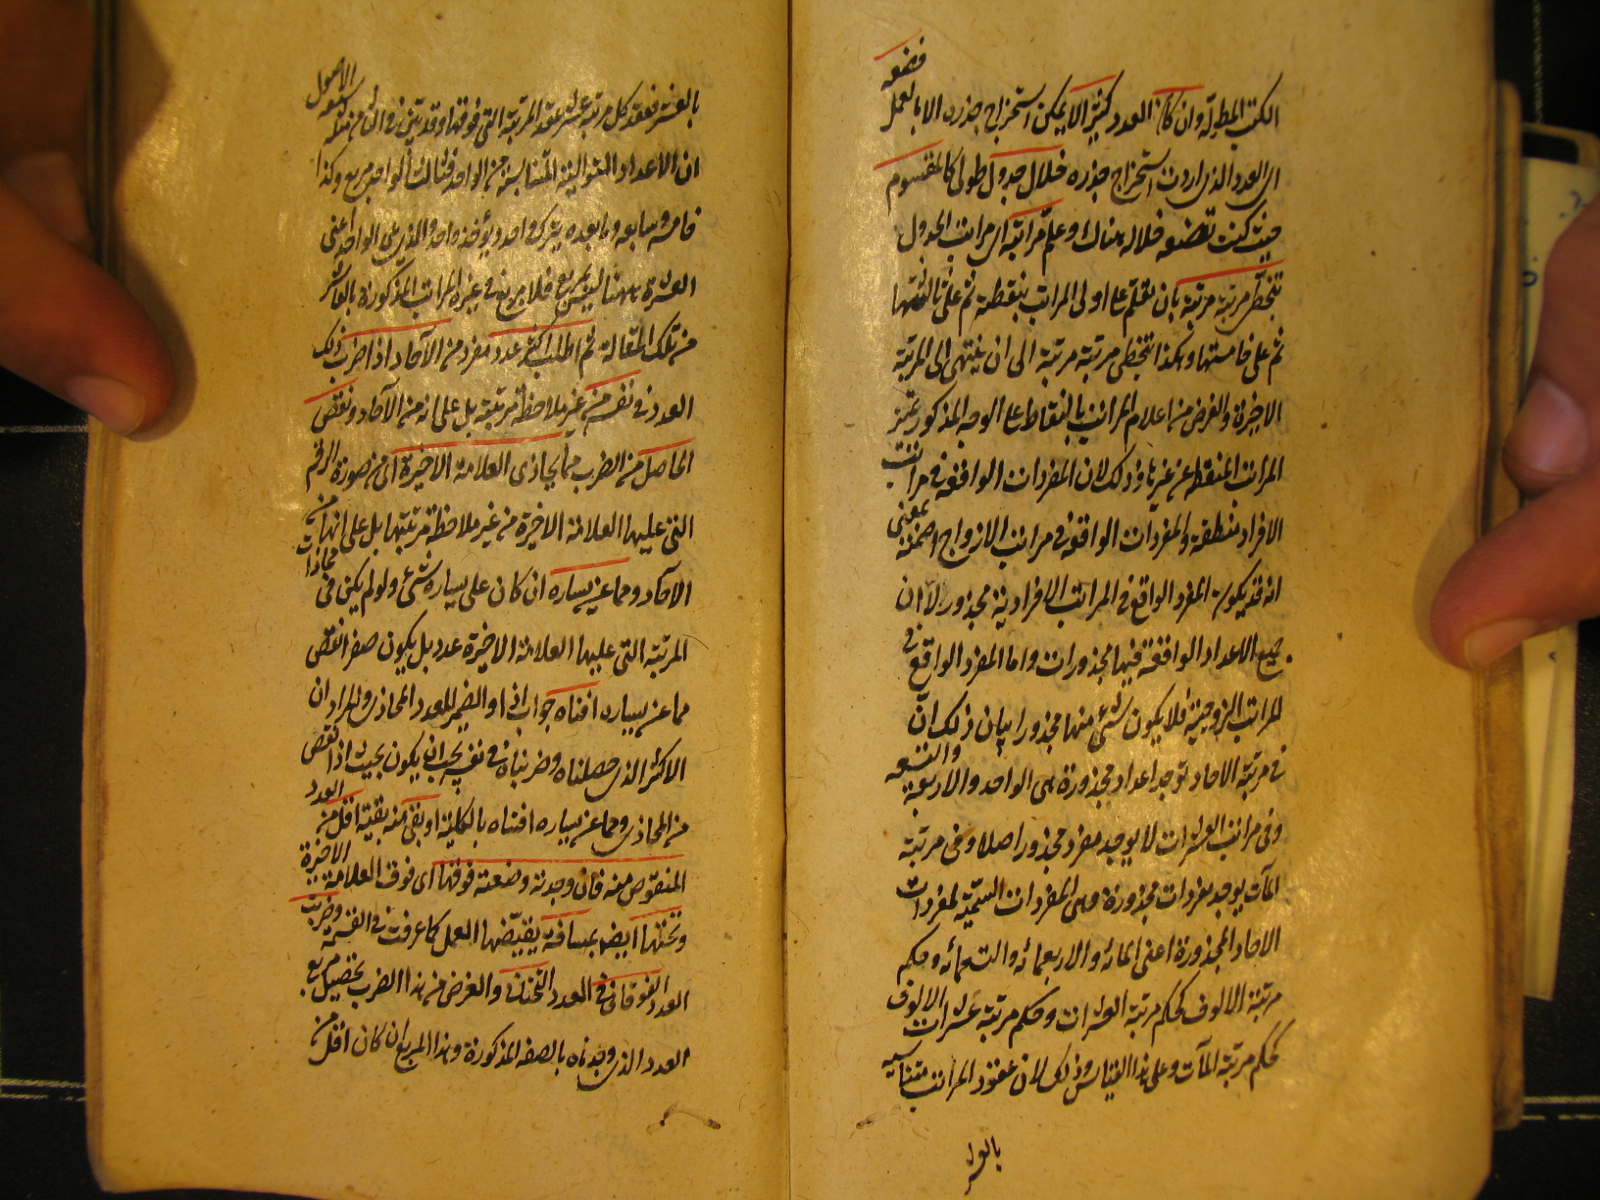 الكتب المطولة وان كان العدد كثيرا لا يمكن استخراج جذره الا بالعمل فضعه
اى العدد الذى اردت استخراج جذره خلال جدول طولى كالمقسوم
حيث كنت تضعه خلاله هناك وعلم مراتبه اى مراتب الجدول
بتخطى مرتبة مرتبة بان تعلم على اولى المراتب بنقطة ثم على ثالثتها
ثم على خامستها وهكذا تتخطى مرتبة مرتبة الى ان ينتهى الى المرتبة
الاخيرة والغرض من اعلام المراتب بالنقاط على الوجه المذكور تميز
المراتب المنطقة عن غيرها وذلك لان المفردات الواقعة فى مراتب
الافراد منطقة والمفردات الواقعة فى مراتب الازواج اصم بمعنى
انه قد يكون المفرد الواقع فى المراتب الافرادية مجذور لا ان
جميع الاعداد الواقعة فيها مجذورات واما المفرد الواقع فى
المراتب الزوجية فلا يكون شئ منها مجذورا بيان ذلك ان
فى مرتبة الاحاد توجد اعداد مجذورة هى الواحد والاربعة والتسعة
وفى مراتب العشرات لا يوجد مفرد مجذور اصلا وفى مرتبة
المآت يوجد مفردات مجذورة وهى المفردات السمية لمفردات
الاحاد المجذورة اعنى المائه والاربعمائه والتسعمائه وحكم
مرتبة الالوف كحكم مرتبة العشرات وحكم مرتبة عشرات الالوف
كحكم مرتبة المآت وعلى هذا القياس وذلك لان عقود المراتب متناسبه
بالعشر
بالعشر فعقد كل مرتبة عشر عقد المرتبة التى فوقها وقد تبين فى الثامن من تاسعة الاصول
ان الاعداد المتوالية المتناسبة من الواحد فثالث الواحد مربع وكذا
خامسه وسابعه وما بعده يترك واحد ويؤخذ واحد والذى يلى الواحد اعنى
العشرة ههنا ليس بمربع فلا مربع فى غير المراتب المذكورة بالعاشر
من تلك المقالة ثم اطلب اكثر عدد مفرد من الآحاد اذا ضرب ذلك
العدد فى نفسه من غير ملاحظة مرتبته بل على انه من الآحاد ونقص
الحاصل من الضرب مما يحاذى العلامة الاخيرة اى من صورة الرقم
التى عليها العلامة الاخيرة من غير ملاحظة مرتبتها بل على انها من
الآحاد ومما عن يساره ان كان على يساره شئ ولو لم يكن فى محاذات
المرتبة التى عليها العلامة الاخيرة عدد بل يكون صفر انقص
مما عن يساره افناه جواب اذا والضمير للعدد المحاذى والمراد ان
الاكثر الذى حصلناه وضربناه فى نفسه يجب ان يكون بحيث اذا نقص
من المحاذى ومما عن يساره افناه بالكلية او بقى منه بقية اقل من العدد
المنقوص منه فان وجدته وضعته فوقها اى فوق العلامة الاخيرة
وتحتها ايضا بمسافة يقتضها العمل كما عرفت فى القسمة وضربت
العدد الفوقانى فى العدد التحتانى والغرض من هذا الضرب تحصيل مربع
العدد الذى وجدناه بالصفة المذكورة وهذا المربع ان كان اقل من